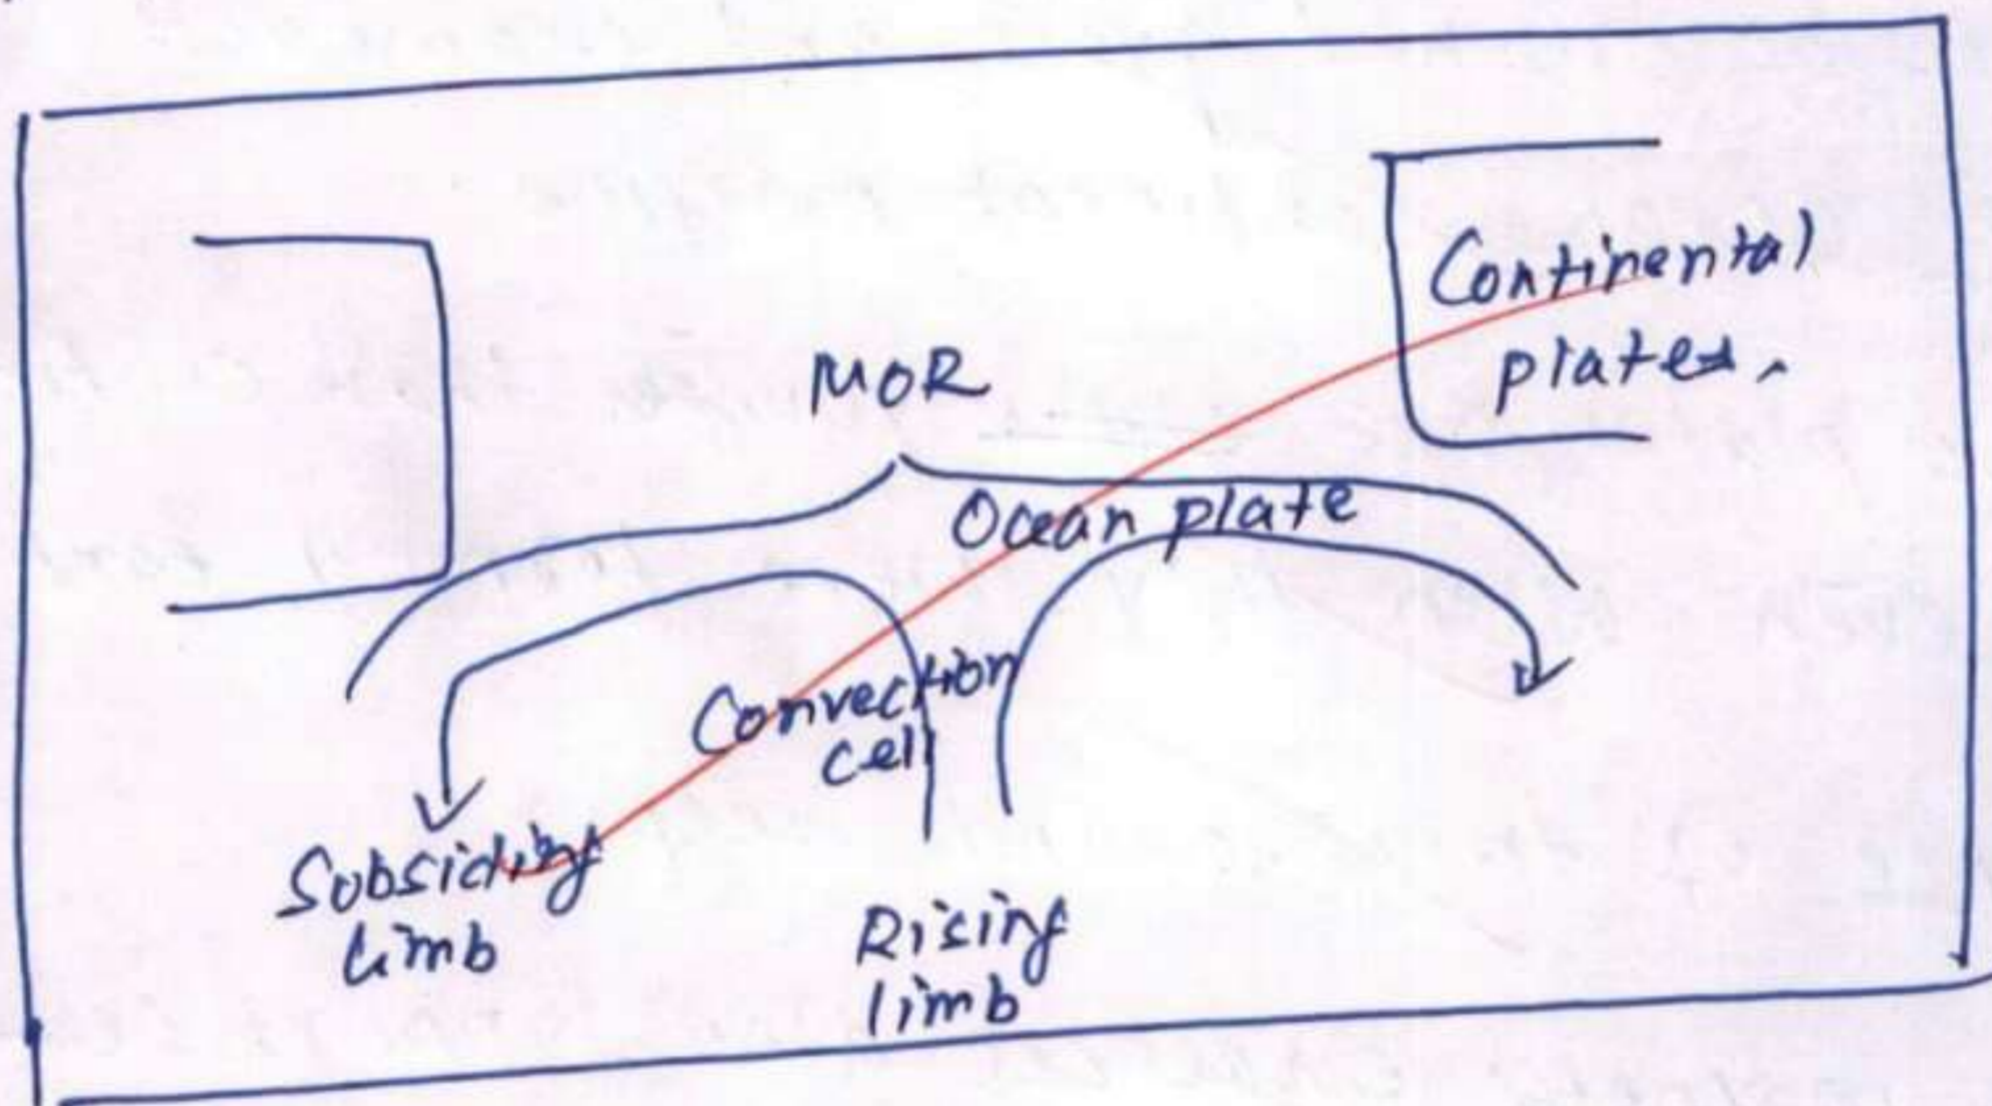 Continental
plates.
MOR
Ocean plate
Convection
cell
Subsiding
limb
Rising
limb